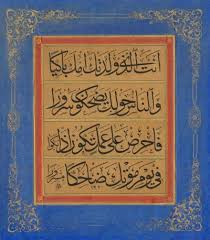 انت الذي ولدتك امك باكيا
والناس حولك يضحكون سرورا
فاحرص على عمل تكون اذا بكوا
في يوم موتك ضاحكا مسرورا